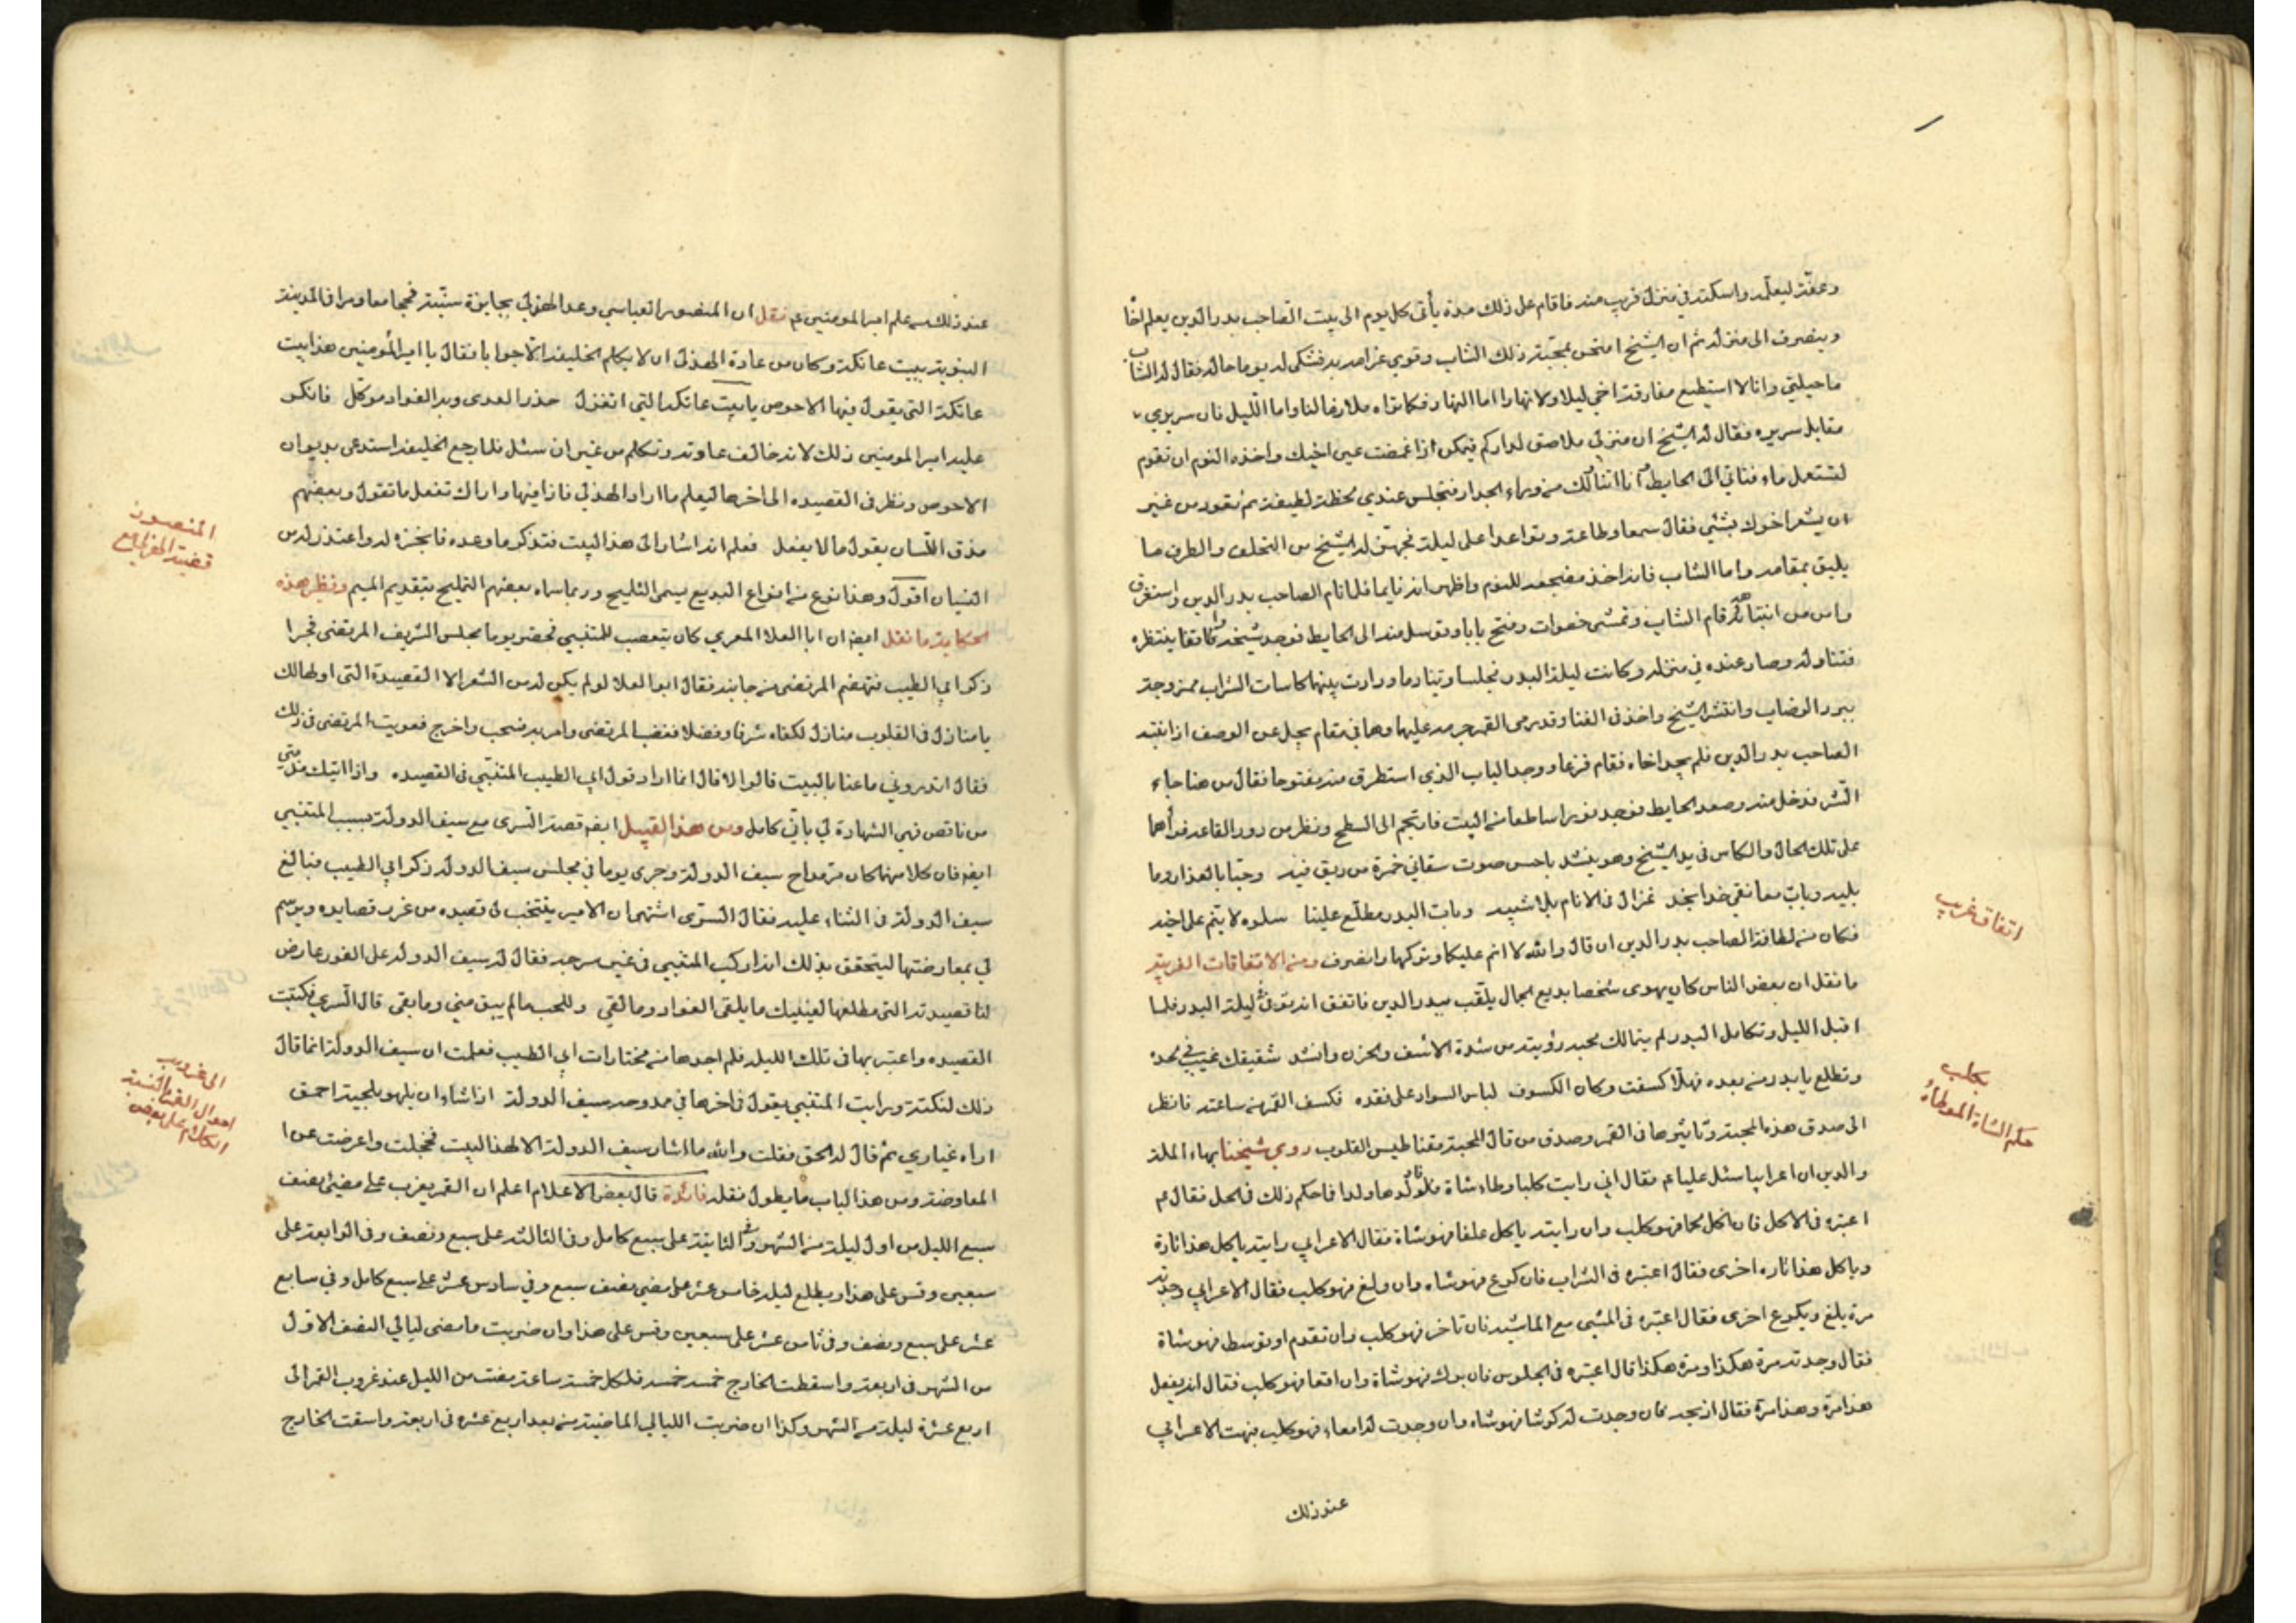 وعفّة ليعلّمه واسكنه في منزل قريب منه فاقام على ذلك مدة يأتى كل يوم الى بيت الصاحب بدر الدين يعلم اخا
وينصرف الى منزله ثم ان الشيخ امتحن بمحبّة ذلك الشاب وقوي غرامه به فشكى له يوما حاله فقال له الشاب
ما حيلتي وانا لا استطيع مفارقة اخي ليلا ولا نهارا اما النهار فكما تراه ملازما لنا واما الليل فان سريري
مقابل سريره فقال له الشيخ ان منزلي ملاصق لداركم فيمكن اذا غمضت عين اخيك واخذه النوم ان تقوم
لتستعمل ماء فتاتي الى الحايط وانا اتناولك من وراء الجدار فتجلس عندي لحظة لطيفة ثم تعود من غير
ان يشعر اخوك بشئي فقال سمعا وطاعة وتواعدا على ليلة فجهّز له الشيخ من التحف والظرف ما
يليق بمقامه واما الشاب فانه اخذ مضجعه للنوم واظهر انه نايما فلما نام الصاحب بدر الدين واستغرق
وامن من انتباهه قام الشاب وتمشى خطوات وفتح بابا وتوسل منه الى الحايط فوجد شيخه واقفا ينتظره
فتناوله وصار عنده في منزله وكانت ليلة البدر فجلسا وتنادما ودارت بينهما كاسات الشراب ممزوجة
ببرد الرضاب وانتشى الشيخ واخذ فى الغنا وقد رمى القمر جرمه عليهما وهما في مقام يجل عن الوصف اذ انتبه
الصاحب بدر الدين فلم يجد اخاه فقام فزعا ووجد الباب الذي استطرق منه مفتوحا فقال من هنا جاء
الشر فدخل منه وصعد الحايط فوجد نورا ساطعا من البيت فارتجم الى السطح ونظر من دور القاعه فرأهما
على تلك الحال والكاس في يد الشيخ وهو ينشد باحسن صوت سقاني خمرة من ريق فيه وحيّا بالعذار وما
يليه وبات معانقي خدا بخد غزال فى الانام بلا شبيه وبات البدر مطلّع علينا سلوه لا ينم على اخيه
فكان من لطافة الصاحب بدر الدين ان قال والله لا انم عليكما وتركهما وانصرف ومن الاتفاقات الغريبة
ما نقل ان بعض الناس كان يهوى شخصا بديع الجمال يلقّب ببدر الدين فاتفق انه توفى ليلة البدر فلما
اقبل الليل وتكامل البدر لم يتمالك محبه رؤيته من شدة الاسف والحزن وانشد شقيقك غيّب في لحده
وتطلع يا بدر من بعده فهلّا كسفت وكان الكسوف لباس السواد على فقده فكسف القمر من ساعته فانظر
الى صدق هذه المحبة وتاثيرها فى القمر وصدق من قال المحبة مقناطيس القلوب روى شيخنا بهاء الملة
والدين ان اعرابيا سئل عليا عم فقال اني رايت كلبا وطاء شاة فاولدها ولدا فما حكم ذلك فى الحل فقال عم
اعتبره فى الاكل فان اكل لحما فهو كلب وان رايته ياكل علفا فهو شاة فقال الاعرابي رايته ياكل هذا تارة
وياكل هذا تاره اخرى فقال اعتبره فى الشراب فان كرع فهو شاه وان ولغ فهو كلب فقال الاعرابي وجدته
مرة يلغ ويكرع اخرى فقال اعتبره فى المشي مع الماشيه فان تاخر فهو كلب وان تقدم او توسط فهو شاة
فقال وجدته مرة هكذا ومرة هكذا قال اعتبره فى الجلوس فان برك فهو شاة وان اقعا فهو كلب فقال انه يفعل
هذا مرة وهذا مرة فقال اذبحه فان وجدت له كرشا فهو شاه وان وجدت له امعاء فهو كلب فبهت الاعرابي
عند ذلك
اتفاق غريب
حكم الشاة الموطاة
بكلب
عند ذلك من علم امير المومنين عم نقل ان المنصور العباسي وعد الهذلي بجايزة سنيّة فحجا معا ومرا فى المدينة
النبوية ببيت عاتكة وكان من عادة الهذلي ان لا يكلم الخليفة الا جوابا فقال يا امير المومنين هذا بيت
عاتكة التي يقول فيها الاحوص يا بيت عاتكة التي اتغزل حذر العدى وبه الفواد موكّل فانكر
عليه امير المومنين ذلك لانه خالف عادته وتكلم من غير ان سئل فلما رجع الخليفة استدعى بديوان
الاحوص ونظر فى القصيده الى اخرها ليعلم ما اراد الهذلي فاذا فيها واراك تفعل ما تقول وبعضهم
مذق اللّسان يقول ما لا يفعل فعلم انه اشار الى هذا البيت فتذكر ما وعده فانجزه له واعتذر له من
النسيان اقول وهذا نوع من انواع البديع يسمى التلميح وربما سماه بعضهم التمليح بتقديم الميم ونظير هذه
الحكاية ما نقل ايضه ان ابا العلا المعري كان يتعصب للمتنبي فحضر يوما مجلس الشريف المرتضى فجرا
ذكر ابي الطيب فهضم المرتضى من جانبه فقال ابو العلا لو لم يكن له من الشعر الا القصيدة التى اولها لك
يا منازل فى القلوب منازل لكفاه شرفا وفضلا فغضب المرتضى وامر به فسحب واخرج فعوتب المرتضى فى ذلك
فقال اتدروني ما عنا بالبيت قالوا لا قال انما اراد قول ابي الطيب المتنبّي فى القصيده واذا اتتك مذمّتي
من ناقص فهي الشهادة لي باني كامل ومن هذا القبيل ايضه قصة السرى مع سيف الدولة بسبب المتنبي
ايضه فان كلا منهما كان من مداح سيف الدولة وجرى يوما في مجلس سيف الدوله ذكر ابي الطيب فبالغ
سيف الدولة فى الثناء عليه فقال السرّى اشتهى ان الامير ينتخب لى قصيده من غرر قصايده ويرسم
لي بمعارضتها ليتحقق بذلك انه اركب المتنبي فى غير سرجه فقال له سيف الدوله على الفور عارض
لنا قصيدته التى مطلعها لعينيك ما يلقى الفواد وما لقي وللحب ما لم يبق مني وما بقى قال السري فكتبت
القصيده واعتبرتها فى تلك الليلة فلم اجدها من مختارات ابي الطيب فعلمت ان سيف الدولة انما قال
ذلك لنكتة ورايت المتنبي يقول فى اخرها في ممدوحه سيف الدولة اذا شاء ان يلهو بلحية احمق
اراه غباري ثم قال له الحق فقلت والله ما اشار سيف الدولة الا لهذا البيت فخجلت واعرضت عن
المعاوضة ومن هذا الباب ما يطول نقله فائدة قال بعض الاعلام اعلم ان القمر يغرب على مضي نصف
سبع الليل من اول ليلة من الشهر وفى الثانية على سبع كامل وفى الثالثه على سبع ونصف وفى الرابعة على
سبعين وقس على هذا ويطلع ليلة خامس عشر على مضي نصف سبع وفي سادس عشر على سبع كامل وفي سابع
عشر على سبع ونصف وفى ثامن عشر على سبعين وقس على هذا وان ضربت ما مضى ليالي النصف الاول
من الشهر فى اربعة واسقطت الخارج خمسه خمسه فلكل خمسة ساعة مضت من الليل عند غروب القمر الى
اربع عشرة ليلة من الشهر وكذا ان ضربت الليالي الماضية من بعد اربع عشره فى اربعة واسقت الخارج
المنصور
قضية الهذلي مع
احوال القمر بالنسبة
الى غروب